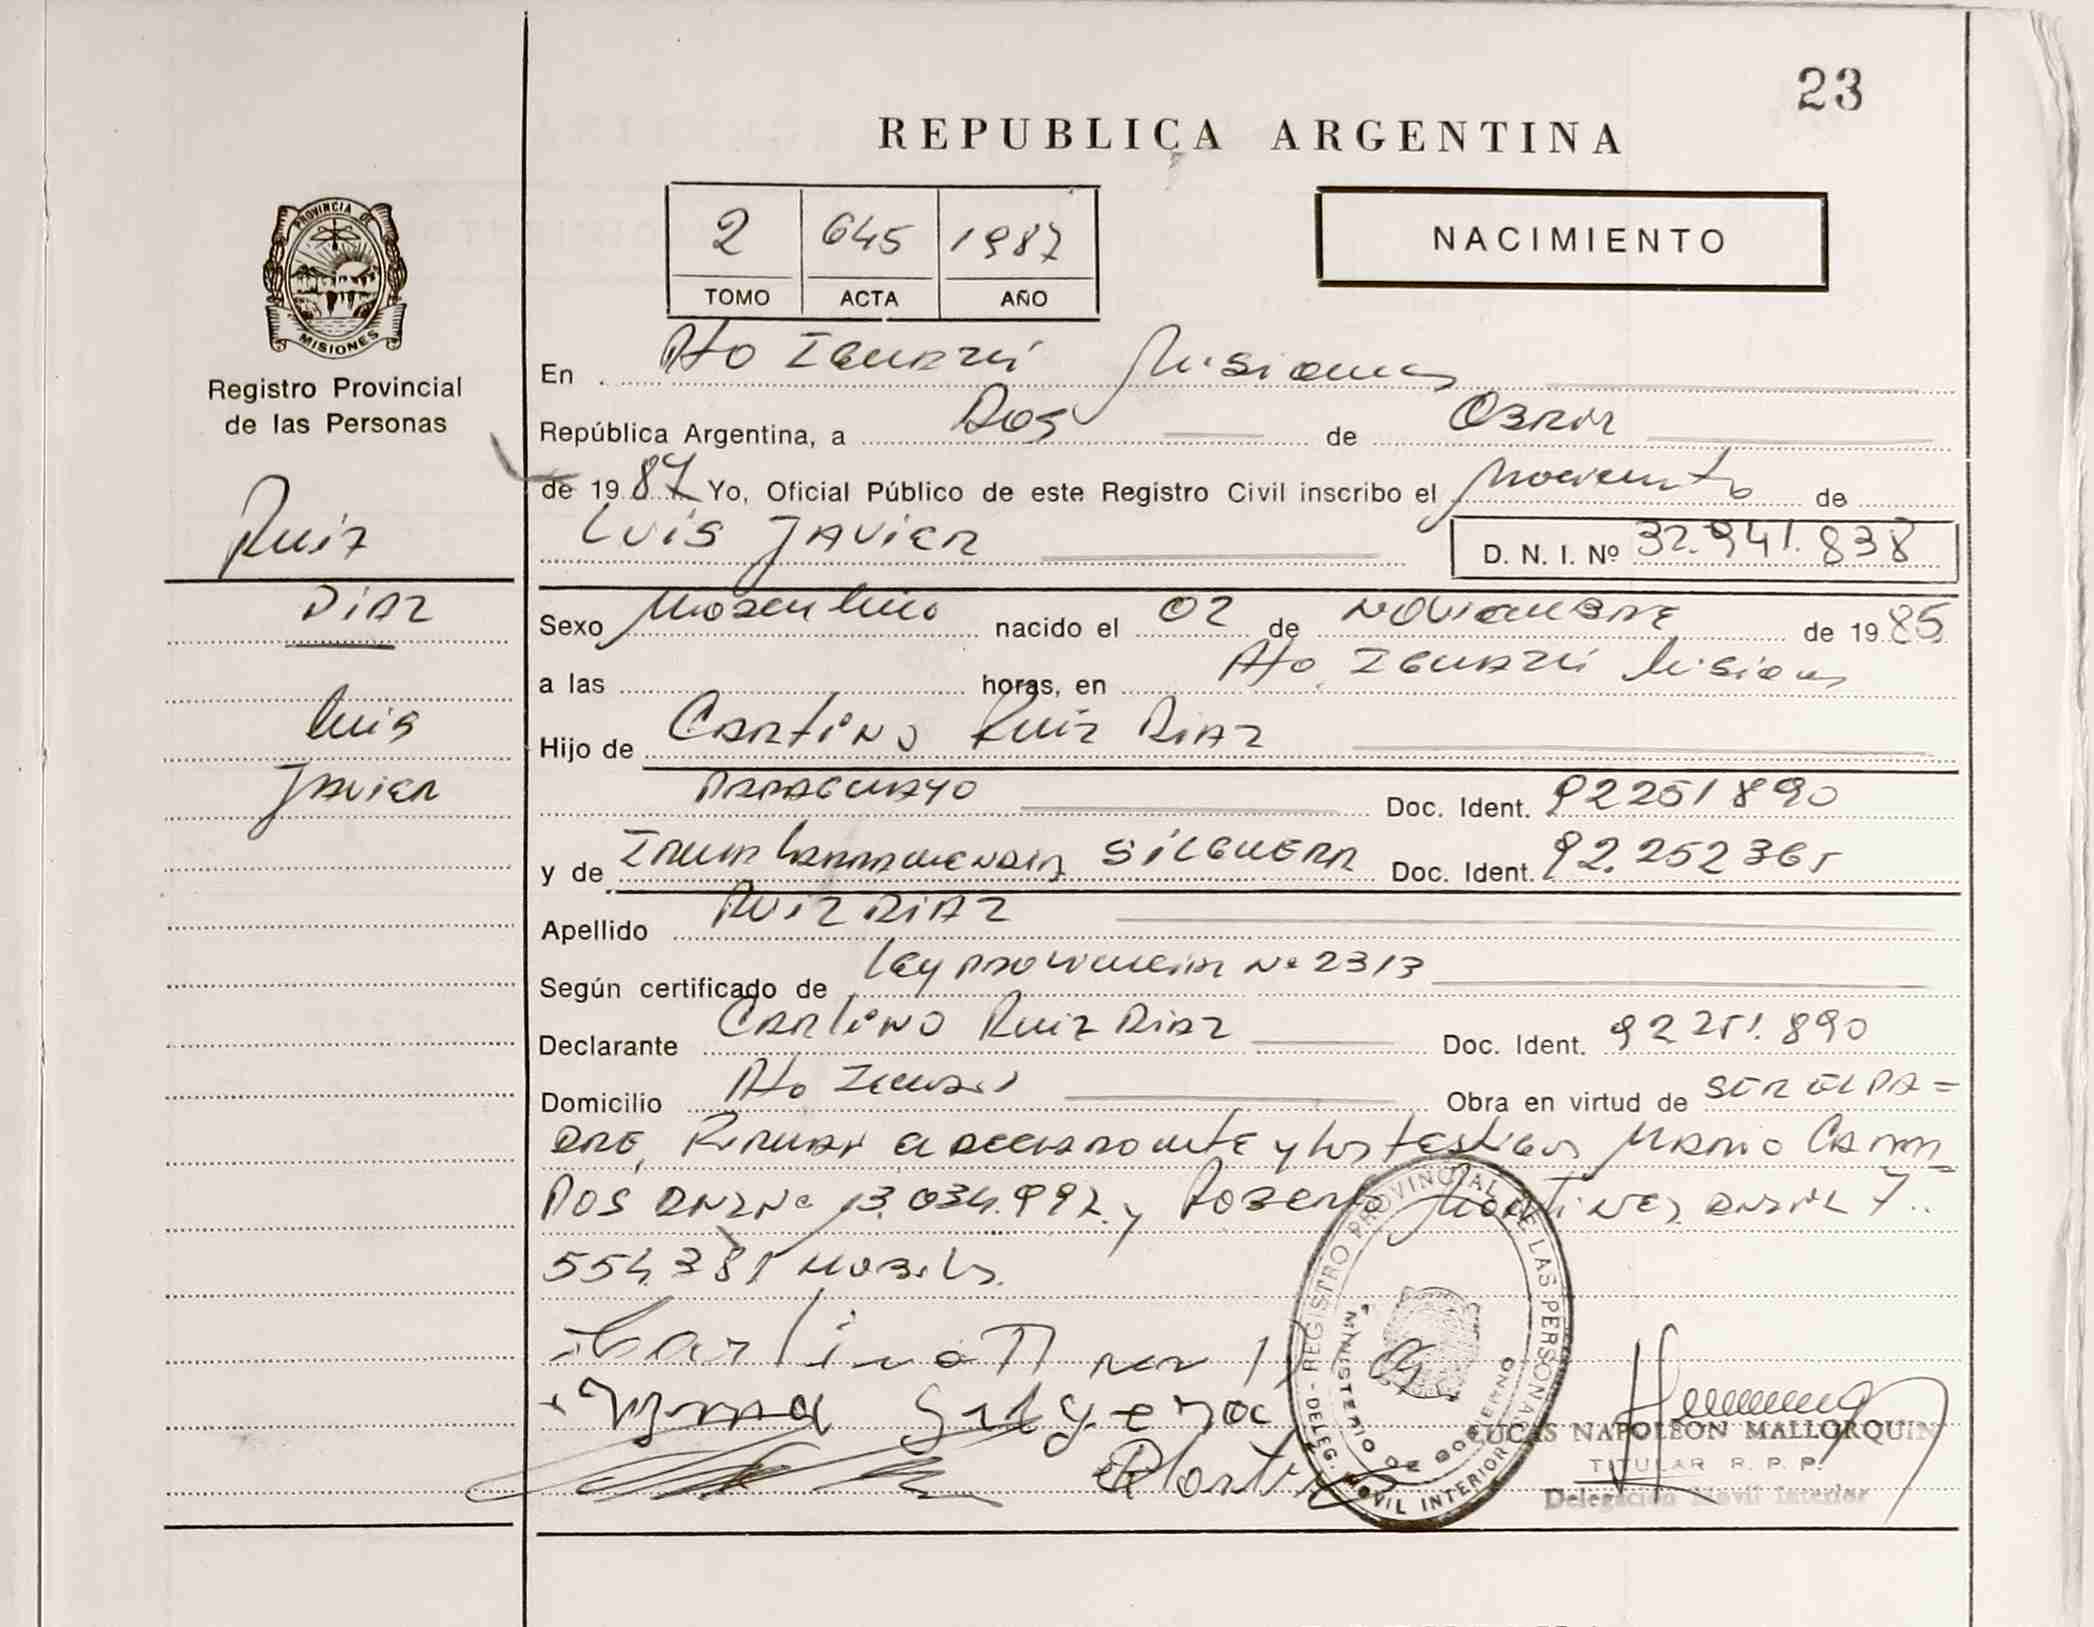 23
REPUBLICA ARGENTINA
2 645 1987
TOMO ACTA AÑO
NACIMIENTO
PROVINCIA DE
MISIONES
Registro Provincial
de las Personas
Ruiz
Diaz
Luis
Javier
En Pto Iguazú Misiones
República Argentina, a Dos de Abril
de 1987 Yo, Oficial Público de este Registro Civil inscribo el Nacimiento de
Luis Javier D. N. I. Nº 32.941.838
Sexo Masculino nacido el 02 de Noviembre de 1985
a las horas, en Pto. Iguazú Misiones
Hijo de Carlino Ruiz Diaz
Paraguayo Doc. Ident. 92251890
y de Irma Larramendia Silguera Doc. Ident. 92.252365
Apellido Ruiz Diaz
Según certificado de Ley Provincial Nº 2313
Declarante Carlino Ruiz Diaz Doc. Ident. 92251.890
Domicilio Pto Iguazú Obra en virtud de ser el pa=
dre, Firman el declarante y los testigos Mario Cam
pos DNI Nº 13.034.992 y Roberto Martinez DNI Nº 7..
554.381
Carlino R
Irma Silgera
REGISTRO PROVINCIAL DE LAS PERSONAS - DELEG. MOVIL INTERIOR
MINISTERIO DE GOBIERNO
LUCAS NAPOLEON MALLORQUIN
TITULAR R. P. P.
Delegación Movil Interior